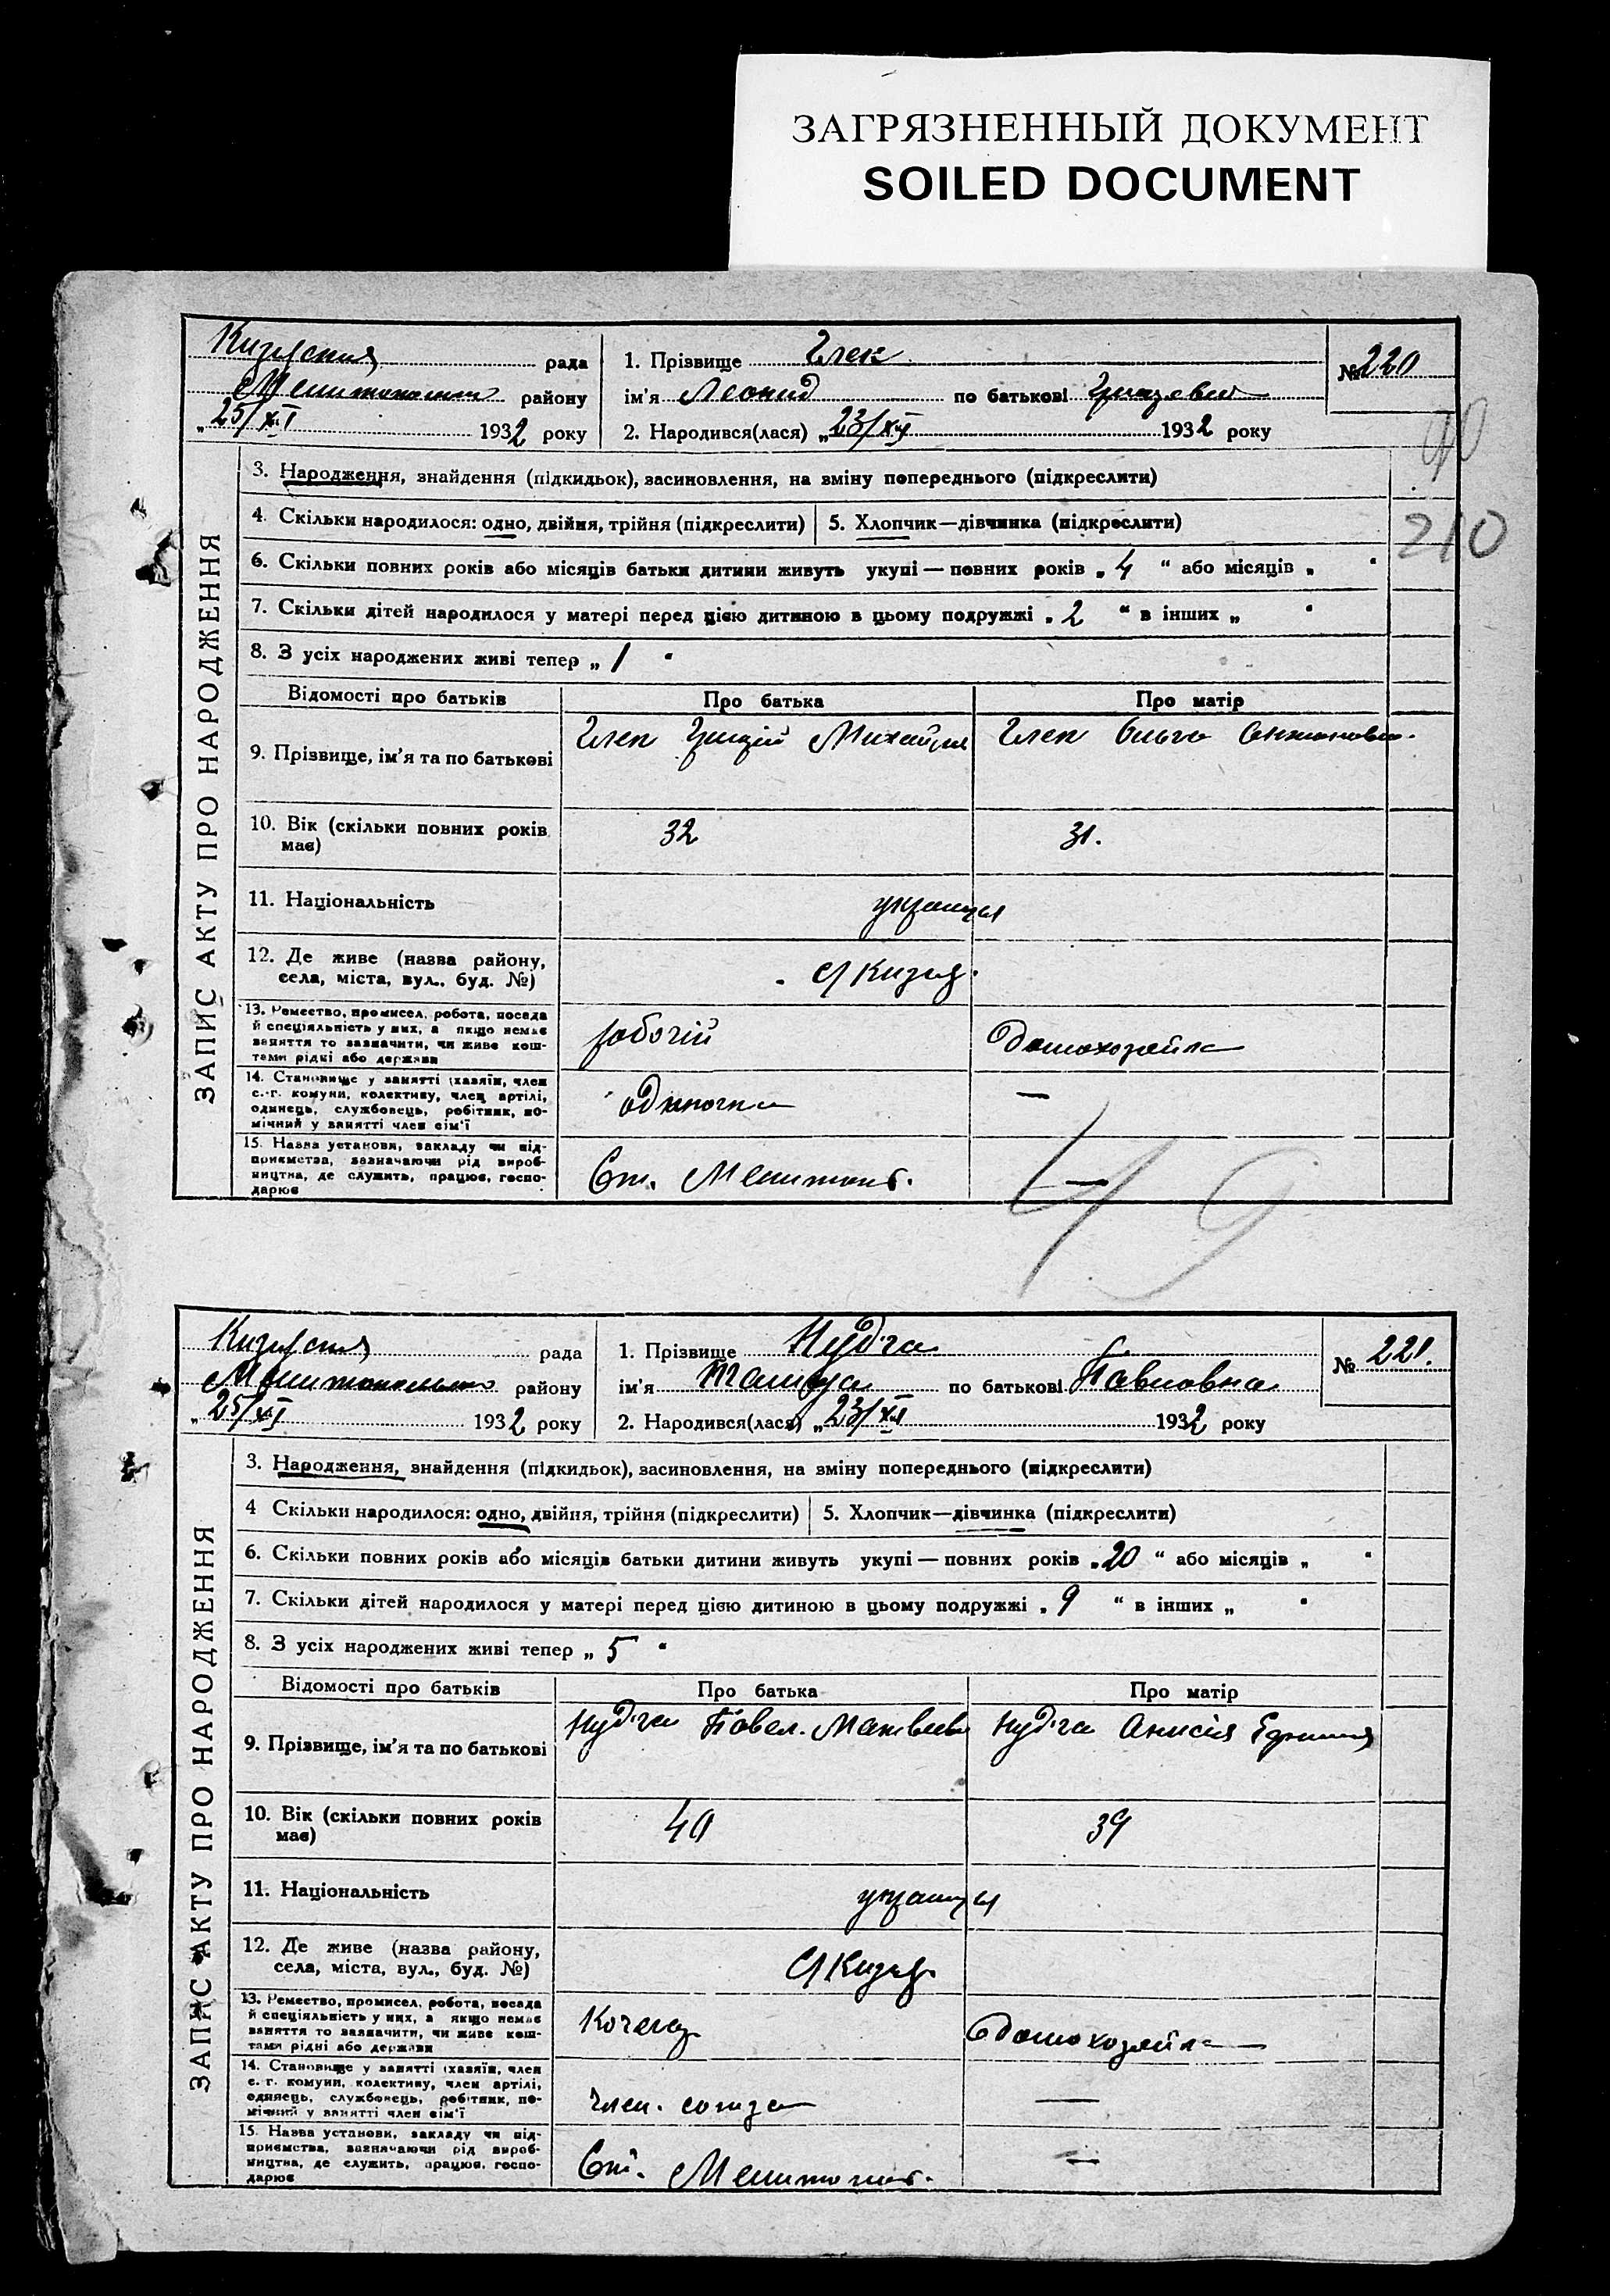 ЗАГРЯЗНЕННЫЙ ДОКУМЕНТ
SOILED DOCUMENT
рада
району
„25/XI 1932 року
1. Прізвище
ім'я Леонид по батькові
2. Народився(лася) „23/XI 1932 року
№ 220
210
ЗАПИС АКТУ ПРО НАРОДЖЕННЯ
3. Народження, знайдення (підкидьок), засиновлення, на зміну попереднього (підкреслити)
4. Скільки народилося: одно, двійня, трійня (підкреслити)
5. Хлопчик—дівчинка (підкреслити)
6. Скільки повних років або місяців батьки дитини живуть укупі — повних років „ 4 “ або місяців „ “
7. Скільки дітей народилося у матері перед цією дитиною в цьому подружжі „ 2 “ в інших „ “
8. З усіх народжених живі тепер „ 1 “
Відомості про батьків
Про батька
Про матір
9. Прізвище, ім'я та по батькові
10. Вік (скільки повних років
має)
32
31.
11. Національність
12. Де живе (назва району,
села, міста, вул., буд. №)
13. Ремество, промисел, робота, посада
й спеціяльність у них, а якщо немає
заняття то зазначити, чи живе кош-
тами рідні або держави
робочій
14. Становище у занятті (хазяїн, член
с.-г. комуни, колективу, член артілі,
одинець, службовець, робітник, по-
мічний у занятті член сім'ї
—
15. Назва установи, закладу чи під-
приємства, зазначаючи рід вироб-
ництва, де служить, працює, госпо-
дарює
Ст.
—
рада
району
„25/XI 1932 року
1. Прізвище Нудьга
ім'я по батькові Павловна
2. Народився(лася) „23/XI 1932 року
№ 221.
ЗАПИС АКТУ ПРО НАРОДЖЕННЯ
3. Народження, знайдення (підкидьок), засиновлення, на зміну попереднього (підкреслити)
4 Скільки народилося: одно, двійня, трійня (підкреслити)
5. Хлопчик—дівчинка (підкреслити)
6. Скільки повних років або місяців батьки дитини живуть укупі — повних років „ 20 “ або місяців „ “
7. Скільки дітей народилося у матері перед цією дитиною в цьому подружжі „ 9 “ в інших „ “
8. З усіх народжених живі тепер „ 5 “
Відомості про батьків
Про батька
Про матір
9. Прізвище, ім'я та по батькові
Нудьга Павел.
Нудьга Анисія
10. Вік (скільки повних років
має)
40
39
11. Національність
12. Де живе (назва району,
села, міста, вул., буд. №)
13. Ремество, промисел, робота, посада
й спеціяльність у них, а якщо немає
заняття то зазначити, чи живе кош-
тами рідні або держави
Кочегар
14. Становище у занятті (хазяїн, член
с.-г. комуни, колективу, член артілі,
одинець, службовець, робітник, по-
мічний у занятті член сім'ї
член. союза
—
15. Назва установи, закладу чи під-
приємства, зазначаючи рід вироб-
ництва, де служить, працює, госпо-
дарює
Ст.
—